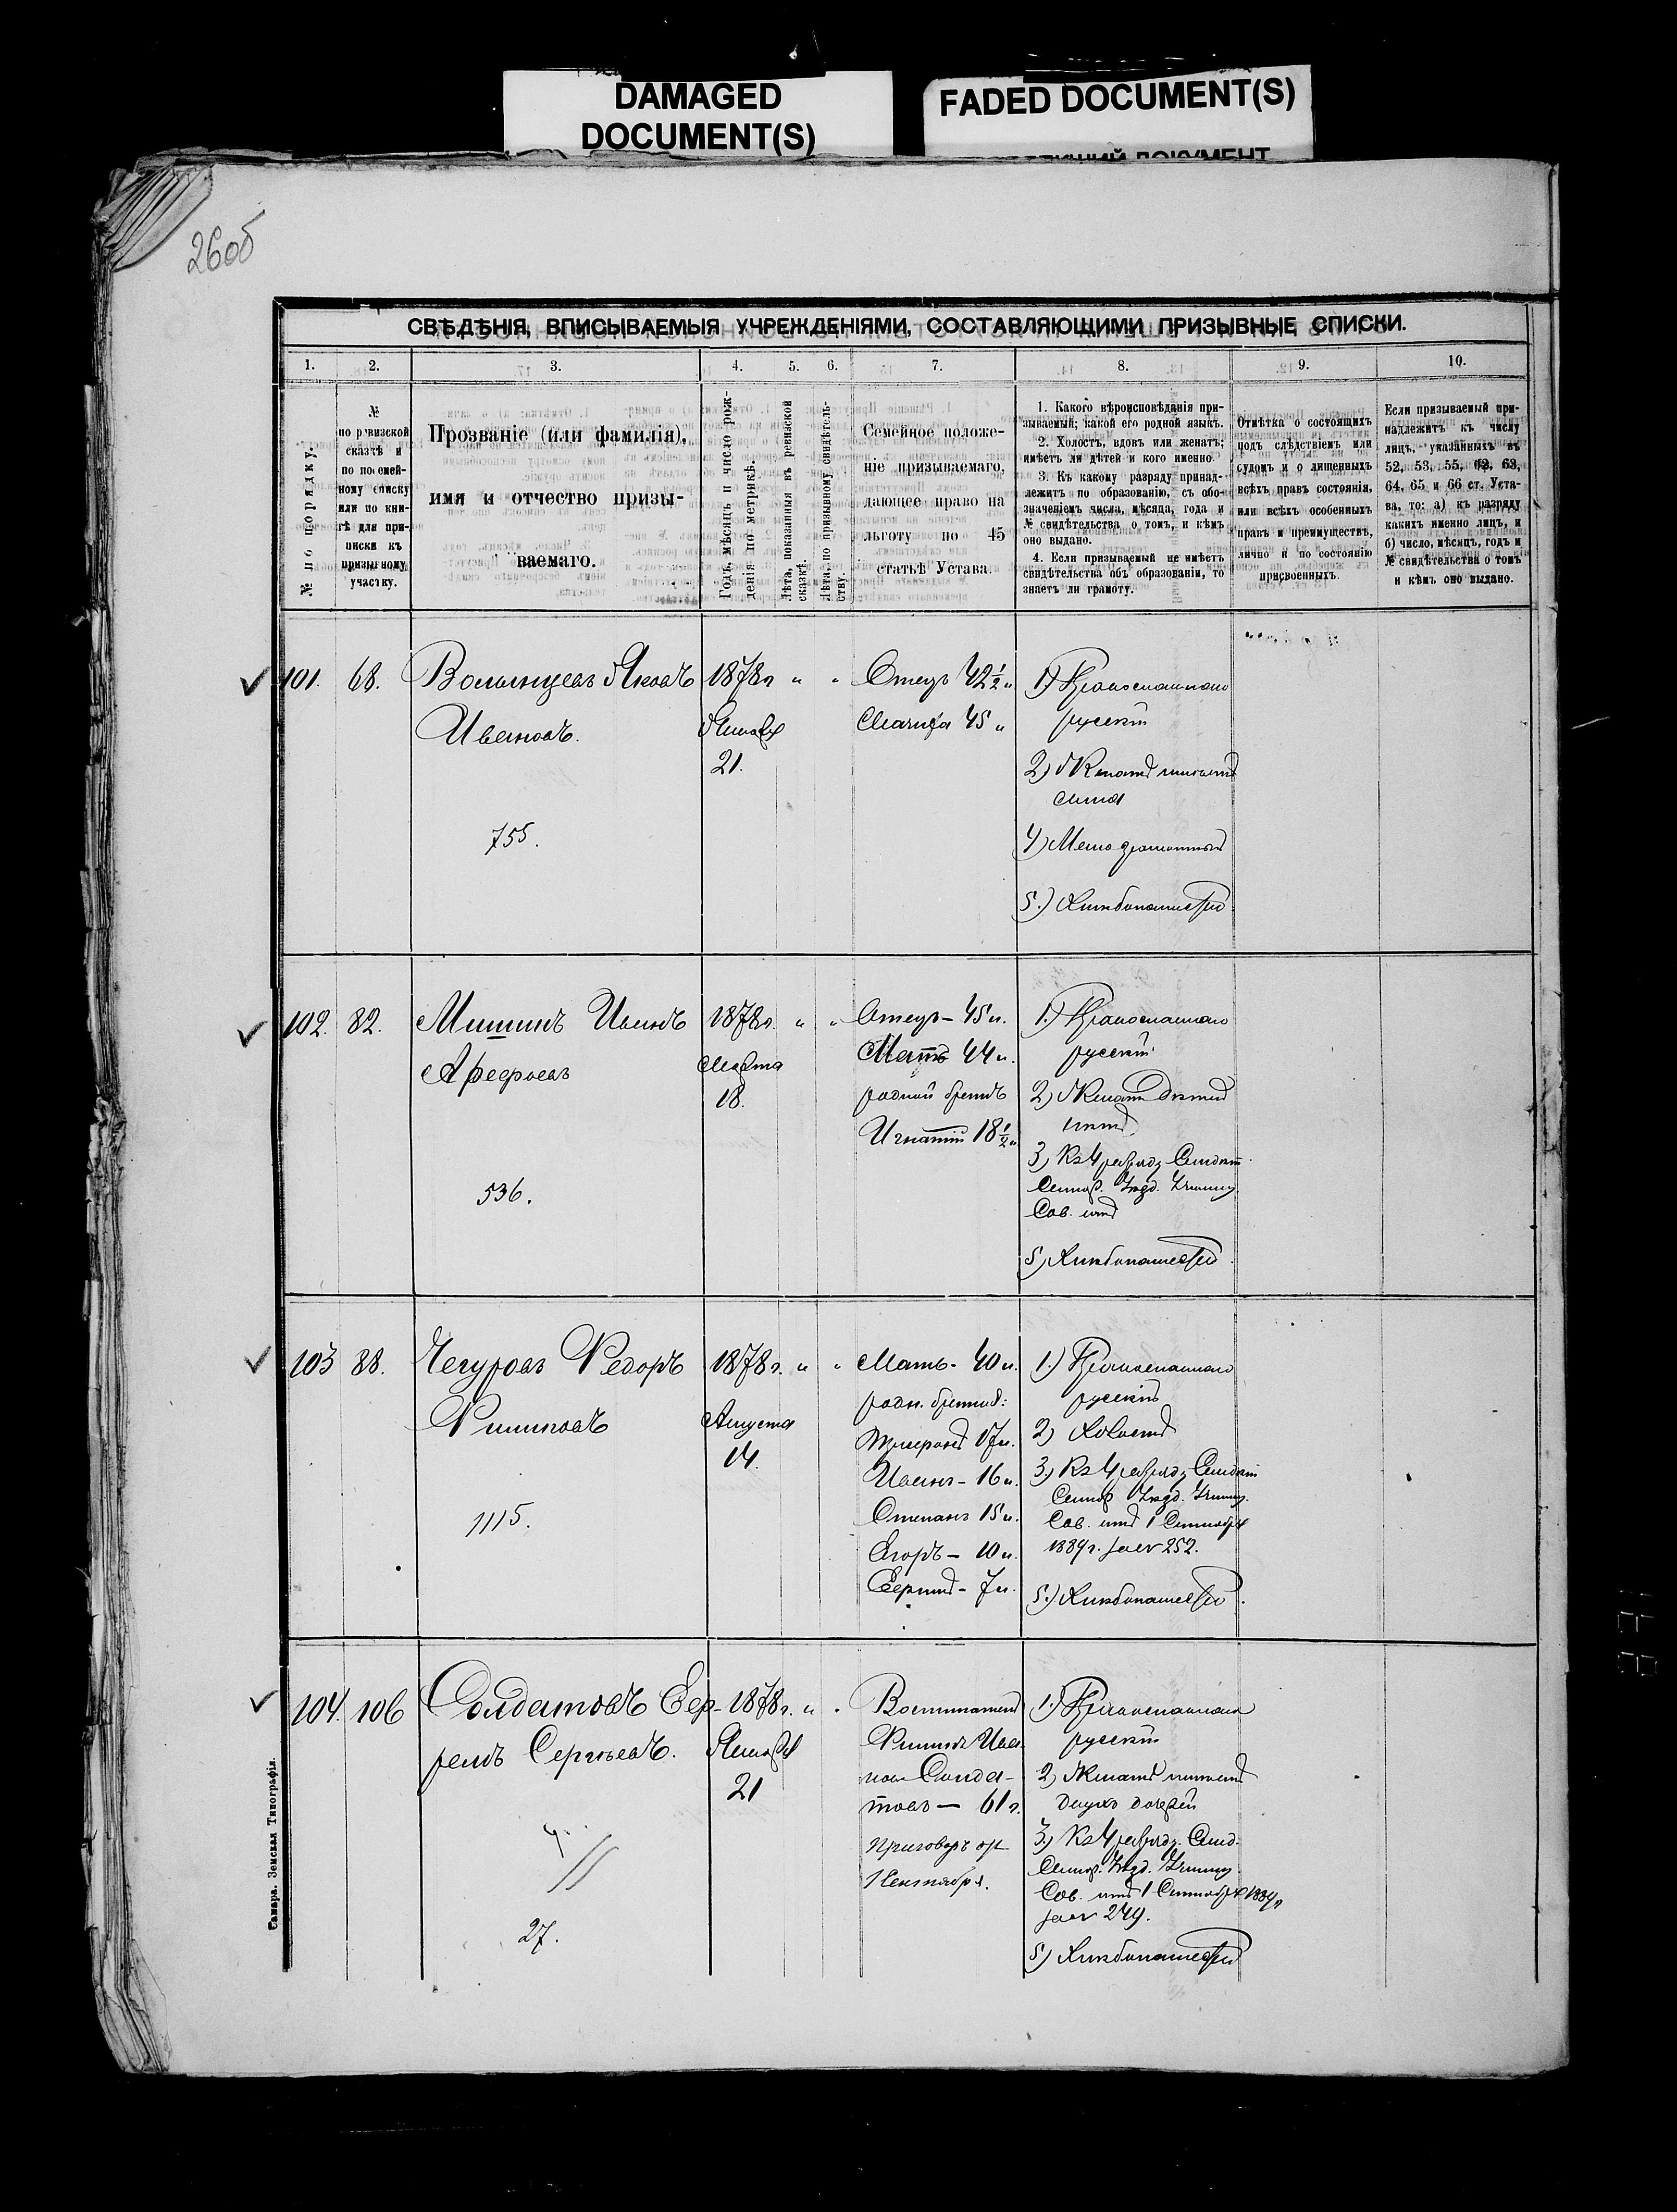 DAMAGED
DOCUMENT(S)
FADED DOCUMENT(S)
260б
СВѢДѢНІЯ, ВПИСЫВАЕМЫЯ УЧРЕЖДЕНІЯМИ, СОСТАВЛЯЮЩИМИ ПРИЗЫВНЫЕ СПИСКИ.
1. 2. 3. 4. 5. 6. 7. 8. 9. 10.
№ по порядку.
№
по ревизской
сказкѣ и
по посемей-
ному списку
или по кни-
гѣ для при-
писки къ
призывному
участку.
Прозваніе (или фамилія),
имя и отчество призы-
ваемаго.
Годъ, мѣсяцъ и число рож-
денія по метрикѣ.
Лѣта, показанныя въ ревизской
сказкѣ.
Лѣта, по призывному свидѣтель-
ству.
Семейное положе-
ніе призываемаго,
дающее право на
льготу по 45
статьѣ Устава.
1. Какого вѣроисповѣданія при-
зываемый; какой его родной языкъ.
2. Холостъ, вдовъ или женатъ;
имѣетъ ли дѣтей и кого именно.
3. Къ какому разряду принад-
лежитъ по образованію, съ обо-
значеніемъ числа, мѣсяца, года и
№ свидѣтельства о томъ, и кѣмъ
оно выдано.
4. Если призываемый не имѣетъ
свидѣтельства объ образованіи, то
знаетъ ли грамоту.
Отмѣтка о состоящихъ
подъ слѣдствіемъ или
судомъ и о лишенныхъ
всѣхъ правъ состоянія,
или всѣхъ особенныхъ
правъ и преимуществъ,
лично и по состоянію
присвоенныхъ.
Если призываемый при-
надлежитъ къ числу
лицъ, указанныхъ въ
52, 53, 55, 62, 63,
64, 65 и 66 ст. Уста-
ва, то: а) къ разряду
какихъ именно лицъ, и
б) число, мѣсяцъ, годъ и
№ свидѣтельства о томъ
и кѣмъ оно выдано.
101. 68. Волынцевъ Яковъ
Ивановъ.
755.
1878г " "
Января
21.
Отецъ 42½
Мачиха 45
1) Православнаго
русскій
2) Женатъ имѣетъ
сына
4) Малограмотный
5.) Хлѣбопашество
102. 82. Мишинъ Иванъ
Арефьевъ
536.
1878г. " "
Марта
18.
Отецъ - 45 л.
Мать 44 л.
родной братъ
Игнатій 18½
1.) Православнаго
русскій
2) Женатъ дѣтей
нѣтъ
3) Къ 4 разряду
5) Хлѣбопашество
103 88. Чегуровъ Ѳедоръ
Филиповъ
1115.
1878г. " "
Августа
14.
Мать - 40 л.
родн. братья:
17 л.
Иванъ - 16 л.
Степанъ 15 л.
Егоръ - 10 л.
Сергѣй - 7 л.
1.) Православнаго
русскій
2) Холостъ
3.) Къ 4 разряду
Сов. отъ 1 Сентября
1889г. за № 252.
5.) Хлѣбопашество
104. 106 Солдатовъ Сер-
Сергѣевъ.
27.
1878г. " "
Января
21
Воспитатель
Филипъ Ива-
новъ Солда-
товъ — 61 г.
Приговоръ от
1 Сентября.
1.) Православнаго
русскій
2) Женатъ имѣетъ
двухъ дочерей
3.) Къ 4 разряду
Сов. отъ 1 Сентября 1889г
за № 249.
5) Хлѣбопашество
Самара. Земская Типографія.